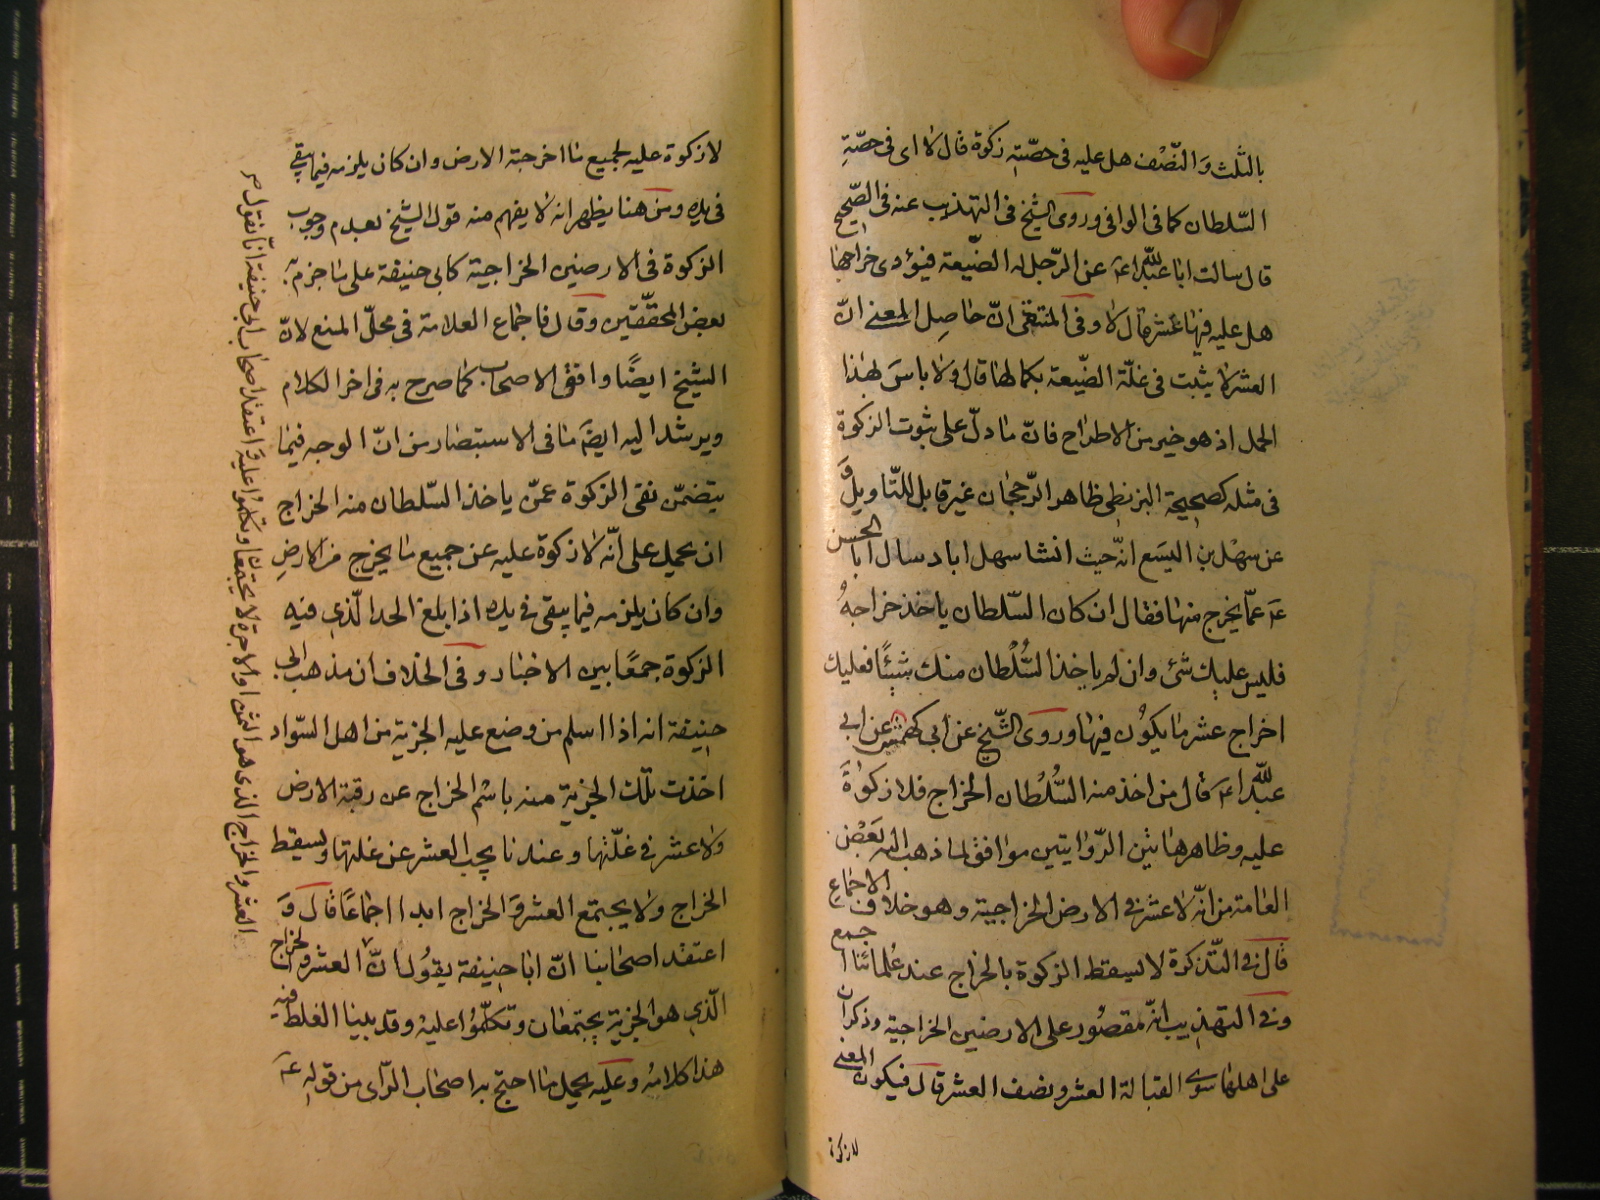 بالثلث وَ النّصْف هل عليه فى حصّتهِ زكوة قال لا اى فى حصّةِ
السّلطان كما فى الوافى وروى الشيخ فى التهذيب عنه فى الصّحيح
قال سالت ابا عبد اللّٰه ع عن الرّجل له الضّيعة فيؤدى خراجها
هل عليه فيها عشر قال لا وفى المنتقى انّ حاصِل المعنى انّ
العشر لا يثبت فى غلّة الضّيعة بكمالها قال ولا باسَ بهذا
الحمل اذ هو خير من الاطراح فانّ ما دلّ على ثبوت الزكوة
فى مثله كصحيحة البزنطى ظاهر الرّجحان غير قابل للتّاويل وَ
عن سهْل بن اليسَع انّه حيث انشا سهل اباد سال ابا الحسن
ع عمّا يخرج منها فقال ان كان السّلطان ياخذ خراجهُ
فليس عليك شئ وان لم ياخذ السُّلْطان منك شيئًا فعليك
اخراج عشر ما يكُون فيها وروى الشّيخ عن ابى كهمش عن ابى
عبد اللّٰه ع قال من اخذ منه السُّلْطان الخراج فلا زكوٰةَ
عليه وظاهر هاتين الرّوايتين موافق لما ذهب اليه بَعْض
العامة من انّه لا عشر فى الارض الخراجية وهو خلاف الاجماع
قال فى التّذكرة لا يسقط الزكوة بالخراج عند عُلمائنا اجمع
وفى التهذيب انّه مقصُور على الارضين الخراجية وذكر ان
على اهلها سوى القبالة العشر ونصف العشر قال فيكون المعنى
لا زكوة
لا زكوة عليه لجميع ما اخرجته الارض وان كان يلزمه فيما يبقى
فى يده ومن هنا يظهر انه لا يفهم منه قول الشيخ بعدم وجوب
الزكوة فى الارضين الخراجية كابى حنيفة على ما جزم به
بعض المحقّقين وقال فاجماع العلامة فى محلّ المنع لانّ
الشيخ ايضًا وافق الاصحاب كما صرح به فى اخر الكلام
ويرشد اليه ايضَ ما فى الاستبصار من انّ الوجه فيما
يتضمّن نفى الزكوة عمّن ياخذ السّلطان منه الخراج
ان يحمل على انّه لا زكوة عليه عن جميع ما يخرج من الارضِ
وان كان يلزمه فيما يبقى فى يده اذا بلغ الحد الّذى فيه
الزكوة جمعًا بين الاخبار وفى الخلاف ان مذهب ابى
حنيفة انه اذا اسلم من وضع عليه الجزية من اهل السّواد
اخذت تلك الجزية منه باسْم الخراج عن رقبة الارض
ولا عشر فى غلّتها وعندنا يجب العشر عن غلتها ويسقط
الخراج ولا يجتمع العشر وَ الخراج ابدا اجماعًا قال وَ
اعتقد اصحابنا انّ ابا حنيفة يقوُل انّ العشر والخراج
الّذى هو الجزية يجتمعان وتكلّموُا عليهْ وقد بينا الغلط فيه
هذا كلامهُ وعليه يحمل ما احتج به اصحاب الرّاى من قوله ع
العشر والخراج الذى هو الثمن او الاجرة لا يجتمعان وتكلّموا عليه واعتقد اصحاب ابى حنيفة انّا نقول